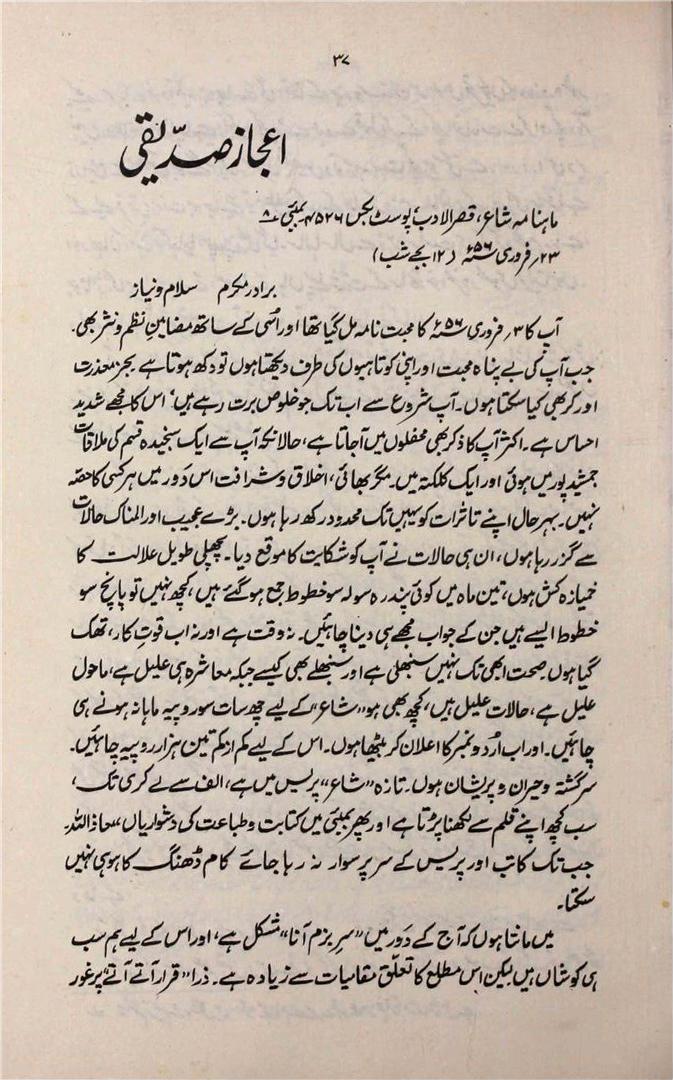 ۳۷
اعجاز صدّیقی
ماہنامہ شاعر، قصر الادب، پوسٹ بکس ۴۵۲۶، بمبئی ۸
۲۳؍ فروری ۵۶ء (۱۲ بجے شب)
برادر مکرم سلام و نیاز
آپ کا ۳؍ فروری ۵۶ء کا محبت نامہ مل گیا تھا اور اُسی کے ساتھ مضامینِ نظم و نثر بھی۔
جب آپ کی بے پناہ محبت اور اپنی کوتاہیوں کی طرف دیکھتا ہوں تو دکھ ہوتا ہے بجز معذرت
اور کر بھی کیا سکتا ہوں۔ آپ شروع سے اب تک جو خلوص برت رہے ہیں، اس کا مجھے شدید
احساس ہے۔ اکثر آپ کا ذکر بھی محفلوں میں آجاتا ہے، حالانکہ آپ سے ایک سنجیدہ قسم کی ملاقات
جمشید پور میں ہوئی اور ایک کلکتہ میں۔ مگر بھائی، اخلاق و شرافت اس دَور میں ہر کسی کا حصّہ
نہیں۔ بہرحال اپنے تاثرات کو یہیں تک محدود رکھ رہا ہوں۔ بڑے عجیب اور المناک حالات
سے گزر رہا ہوں، ان ہی حالات نے آپ کو شکایت کا موقع دیا۔ پچھلی طویل علالت کا
خمیازہ کش ہوں، تین ماہ میں کوئی پندرہ سولہ سو خطوط جمع ہو گئے ہیں، کچھ نہیں تو پانچ سو
خطوط ایسے ہیں جن کے جواب مجھے ہی دینا چاہئیں۔ نہ وقت ہے اور نہ اب قوتِ کار، تھک
گیا ہوں صحت ابھی تک نہیں سنبھلی ہے اور سنبھلے بھی کیسے جبکہ معاشرہ ہی علیل ہے، ماحول
علیل ہے، حالات علیل ہیں، کچھ بھی ہو "شاعر" کے لیے چھ سات سو روپیہ ماہانہ ہونے ہی
چاہئیں۔ اور اب اُردو نمبر کا اعلان کر بیٹھا ہوں۔ اس کے لیے کم از کم تین ہزار روپیہ چاہئیں۔
سرگشتہ و حیران و پریشان ہوں۔ تازہ "شاعر" پریس میں ہے، الف سے لے کر ی تک،
سب کچھ اپنے قلم سے لکھنا پڑتا ہے اور پھر بمبئی میں کتابت و طباعت کی دشواریاں معاذ اللہ۔
جب تک کاتب اور پریس کے سر پر سوار نہ رہا جائے کام ڈھنگ کا ہو ہی نہیں
سکتا۔
میں مانتا ہوں کہ آج کے دَور میں "سرِ بزم آنا" مشکل ہے، اور اس کے لیے ہم سب
ہی کوشاں ہیں لیکن اس مطلع کا تعلّق مقامیات سے زیادہ ہے۔ ذرا "قرار آتے آتے" پر غور